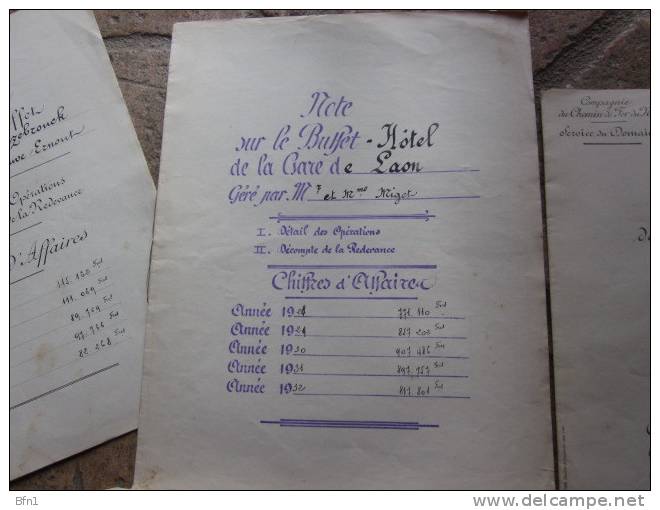 ffet
zebrouck
uve Ernout
Opérations
de la Redevance
d'Affaires
111.069
89.709
97.766
82.268
Note
sur le Buffet - Hôtel
de la Gare de Laon
Géré par Mr et Mme Miget
I. Détail des Opérations
II. Décompte de la Redevance
Chiffres d'Affaires
Année 1928 771.110 Frs
Année 1929 827.202 Frs
Année 1930 907.486 Frs
Année 1931 897.757 Frs
Année 1932 817.801 Frs
Compagnie
du Chemin de Fer du N
Service du Domai
Bfn1
www.delcampe.net